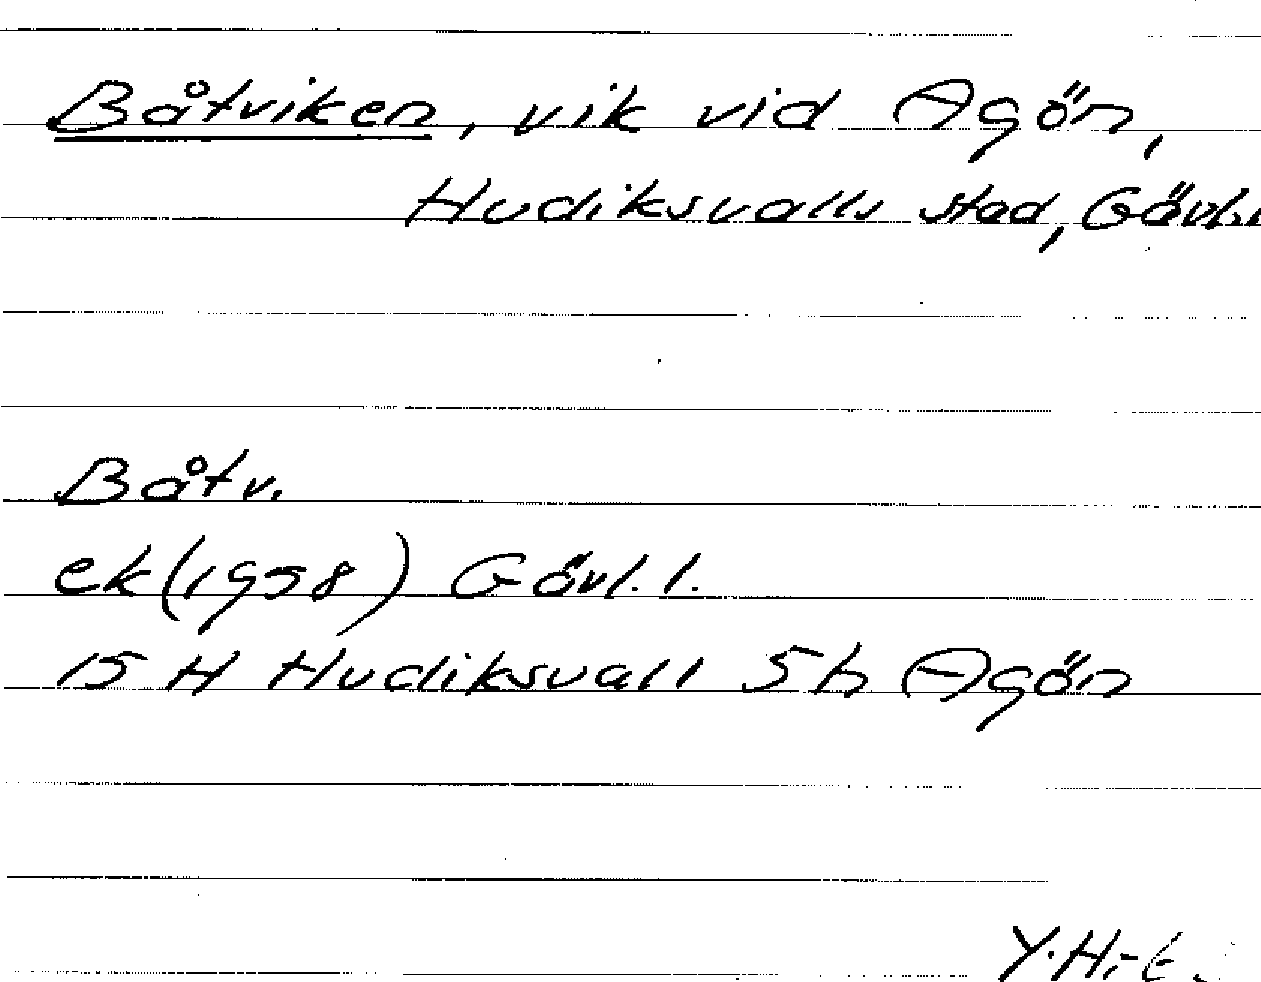 Båtviken, vik vid Agön,
Hudiksvalls stad, Gävl.
Båtv.
ek (1958) Gävl. l.
15 H Hudiksvall 5 h Agön